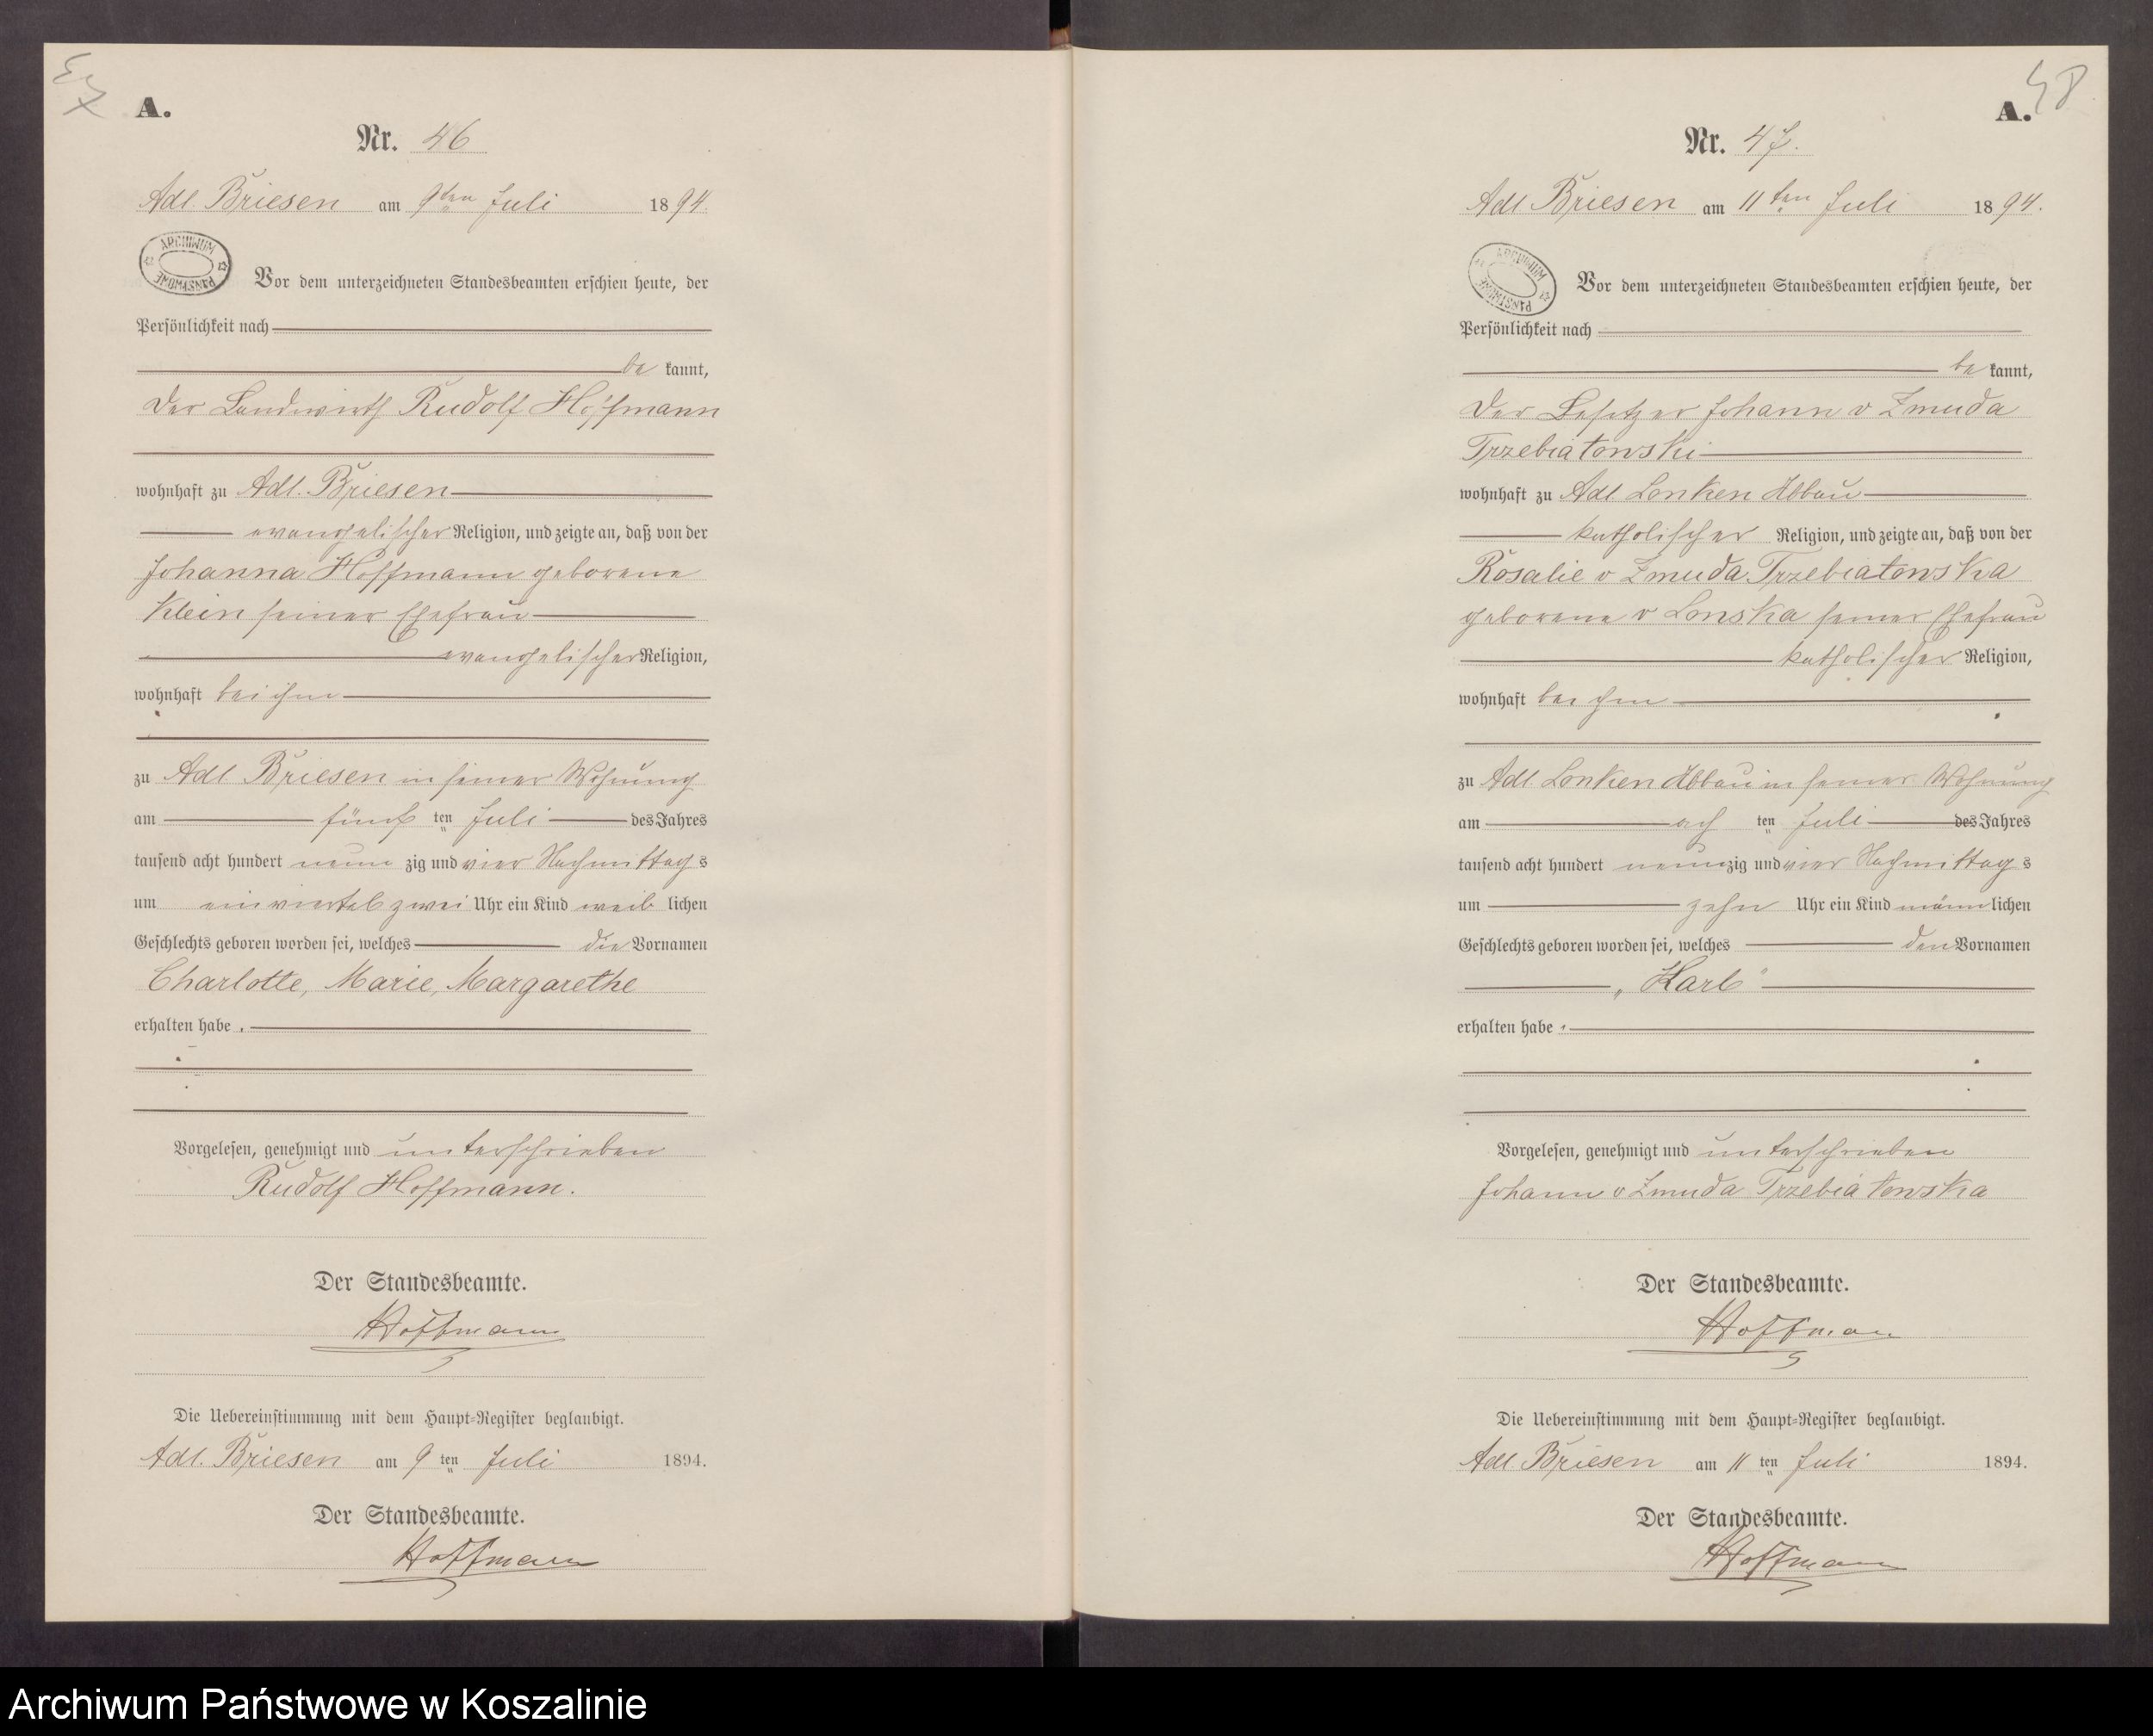 A.
Nr. 46
Adl. Briesen am 9ten Juli 1894.
ARCHIWUM PAŃSTWOWE
Vor dem unterzeichneten Standesbeamten erschien heute, der
Persönlichkeit nach
be kannt,
der Landwirth Rudolf Hoffmann
wohnhaft zu Adl. Briesen
evangelischer Religion, und zeigte an, daß von der
Johanna Hoffmann geborene
Klein seiner Ehefrau
evangelischer Religion,
wohnhaft bei ihm
zu Adl. Briesen in seiner Wohnung
am fünf ten Juli des Jahres
tausend acht hundert neun zig und vier Nachmittag s
um einviertel zwei Uhr ein Kind weib lichen
Geschlechts geboren worden sei, welches die Vornamen
Charlotte, Marie, Margarethe
erhalten habe.
Vorgelesen, genehmigt und unterschrieben
Rudolf Hoffmann.
Der Standesbeamte.
Hoffmann
Die Uebereinstimmung mit dem Haupt-Register beglaubigt.
Adl. Briesen am 9 ten Juli 1894.
Der Standesbeamte.
Hoffmann
48
A.
Nr. 47.
Adl Briesen am 11ten Juli 1894.
ARCHIWUM PAŃSTWOWE
Vor dem unterzeichneten Standesbeamten erschien heute, der
Persönlichkeit nach
be kannt,
der Besitzer Johann v Zmuda
Trzebiatowski
wohnhaft zu Adl Lonken Abbau
katholischer Religion, und zeigte an, daß von der
Rosalie v Zmuda Trzebiatowska
geborene v Lonska seiner Ehefrau
katholischer Religion,
wohnhaft bei ihm
zu Adl. Lonken Abbau in seiner Wohnung
am ach ten Juli des Jahres
tausend acht hundert neun zig und vier Nachmittag s
um zehn Uhr ein Kind männ lichen
Geschlechts geboren worden sei, welches den Vornamen
„Karl"
erhalten habe.
Vorgelesen, genehmigt und unterschrieben
Johann v Zmuda Trzebiatowska
Der Standesbeamte.
Hoffmann
Die Uebereinstimmung mit dem Haupt-Register beglaubigt.
Adl. Briesen am 11 ten Juli 1894.
Der Standesbeamte.
Hoffmann
Archiwum Państwowe w Koszalinie